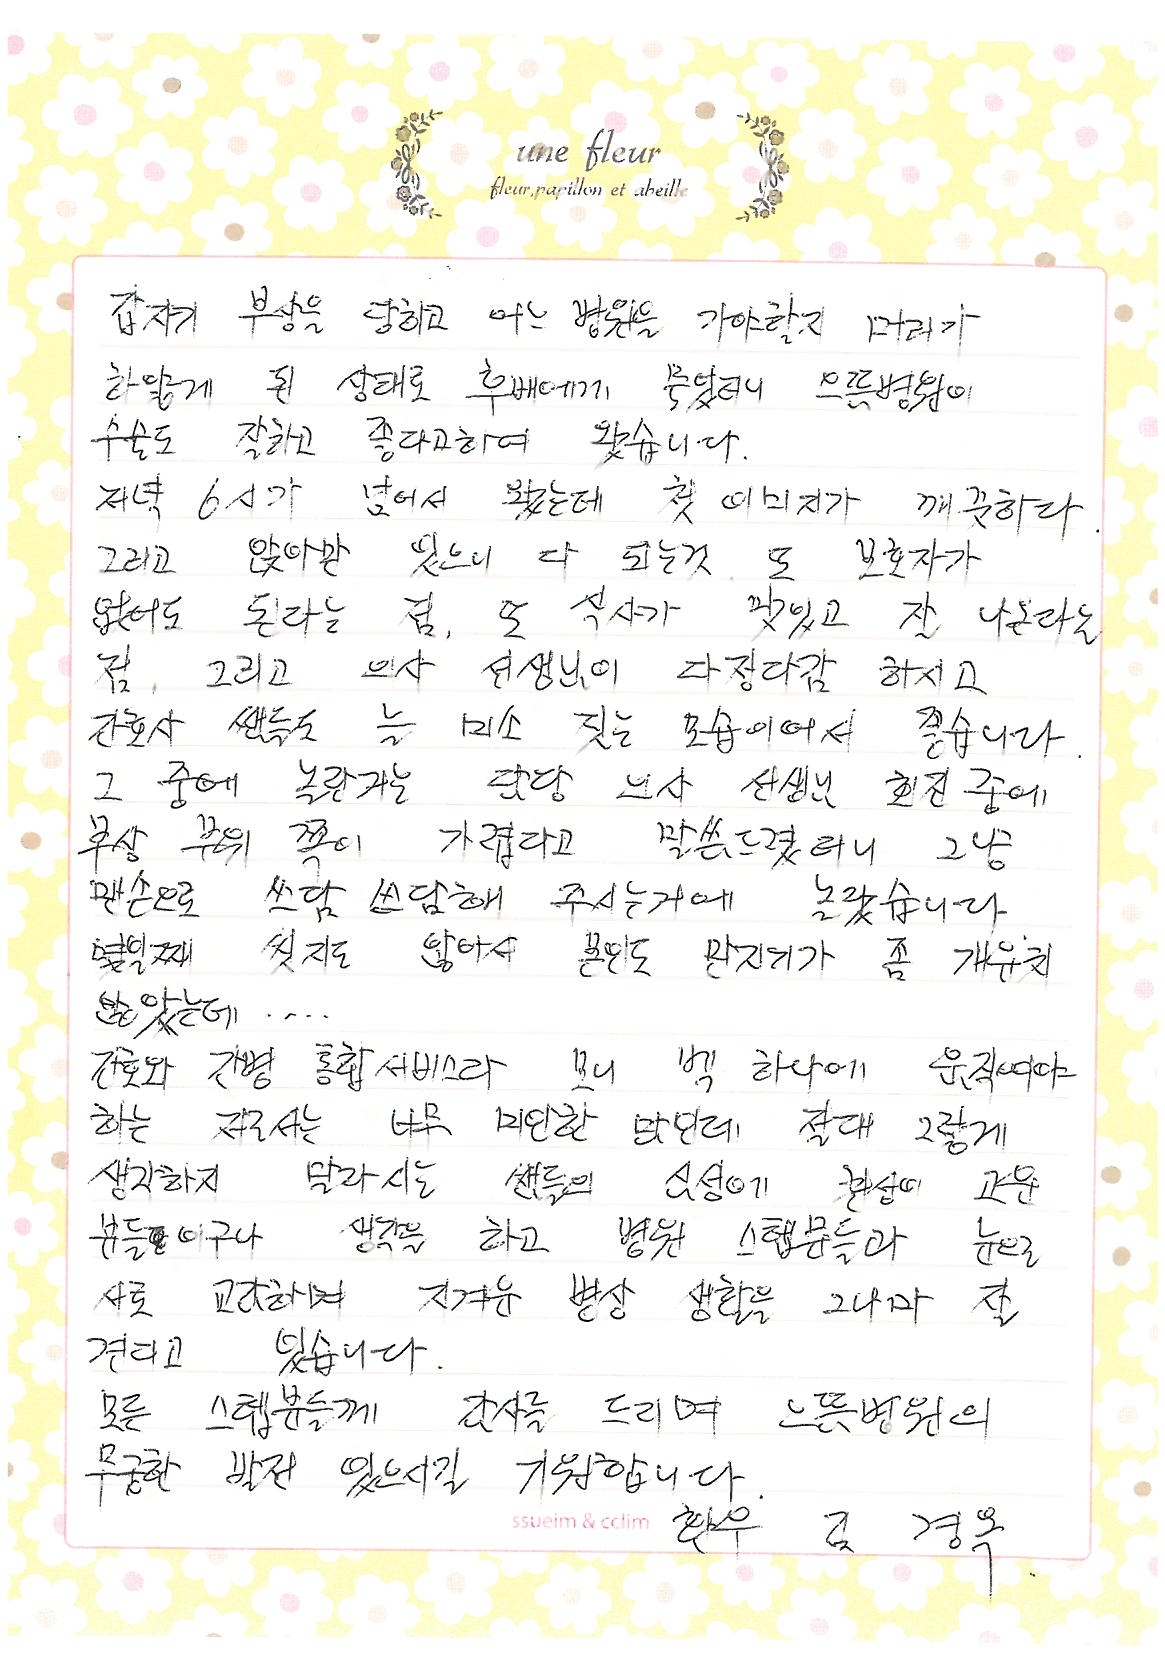 une fleur
fleur,papillon et abeille
갑자기 부상을 당하고 어느 병원을 가야할지 머리가
하얗게 된 상태로 후배에게 물었더니 으뜸병원이
수술도 잘하고 좋다고하여 왔습니다.
저녁 6시가 넘어서 왔는데 첫 이미지가 깨끗하다.
그리고 앉아만 있으니 다 되는것 또 보호자가
없어도 된다는 점, 또 식사가 맛있고 잘 나온다는
점, 그리고 의사 선생님이 다정다감 하시고
간호사 쌤들도 늘 미소 짓는 모습이어서 좋습니다.
그 중에 놀란거는 담당 의사 선생님 회진 중에
부상 부위 쪽이 가렵다고 말씀드렸더니 그냥
맨손으로 쓰담 쓰담해 주시는거에 놀랐습니다
몇일째 씻지도 않아서 본인도 만지기가 좀 개운치
않았는데 ....
간호와 간병 통합서비스라 모니 벨 하나에 움직여야
하는 저로서는 너무 미안한 맘인데 절대 그렇게
생각하지 말라시는 쌤들의 심성에 고운
분들이구나 생각을 하고 병원 스텝분들과 눈으로
서로 교감하며 지겨운 병상 생활을 그나마 잘
견디고 있습니다.
모든 스텝분들께 감사를 드리며 으뜸병원의
무궁한 발전 있으시길 기원합니다.
ssueim & cclim
환우 김 경옥